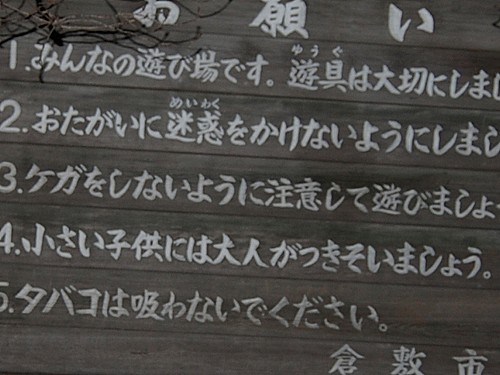 お願い
1.みんなの遊び場です。遊具は大切にしまし
2.おたがいに迷惑をかけないようにしまし
3.ケガをしないように注意して遊びましょう
4.小さい子供には大人がつきそいましょう。
5.タバコは吸わないでください。
倉敷市